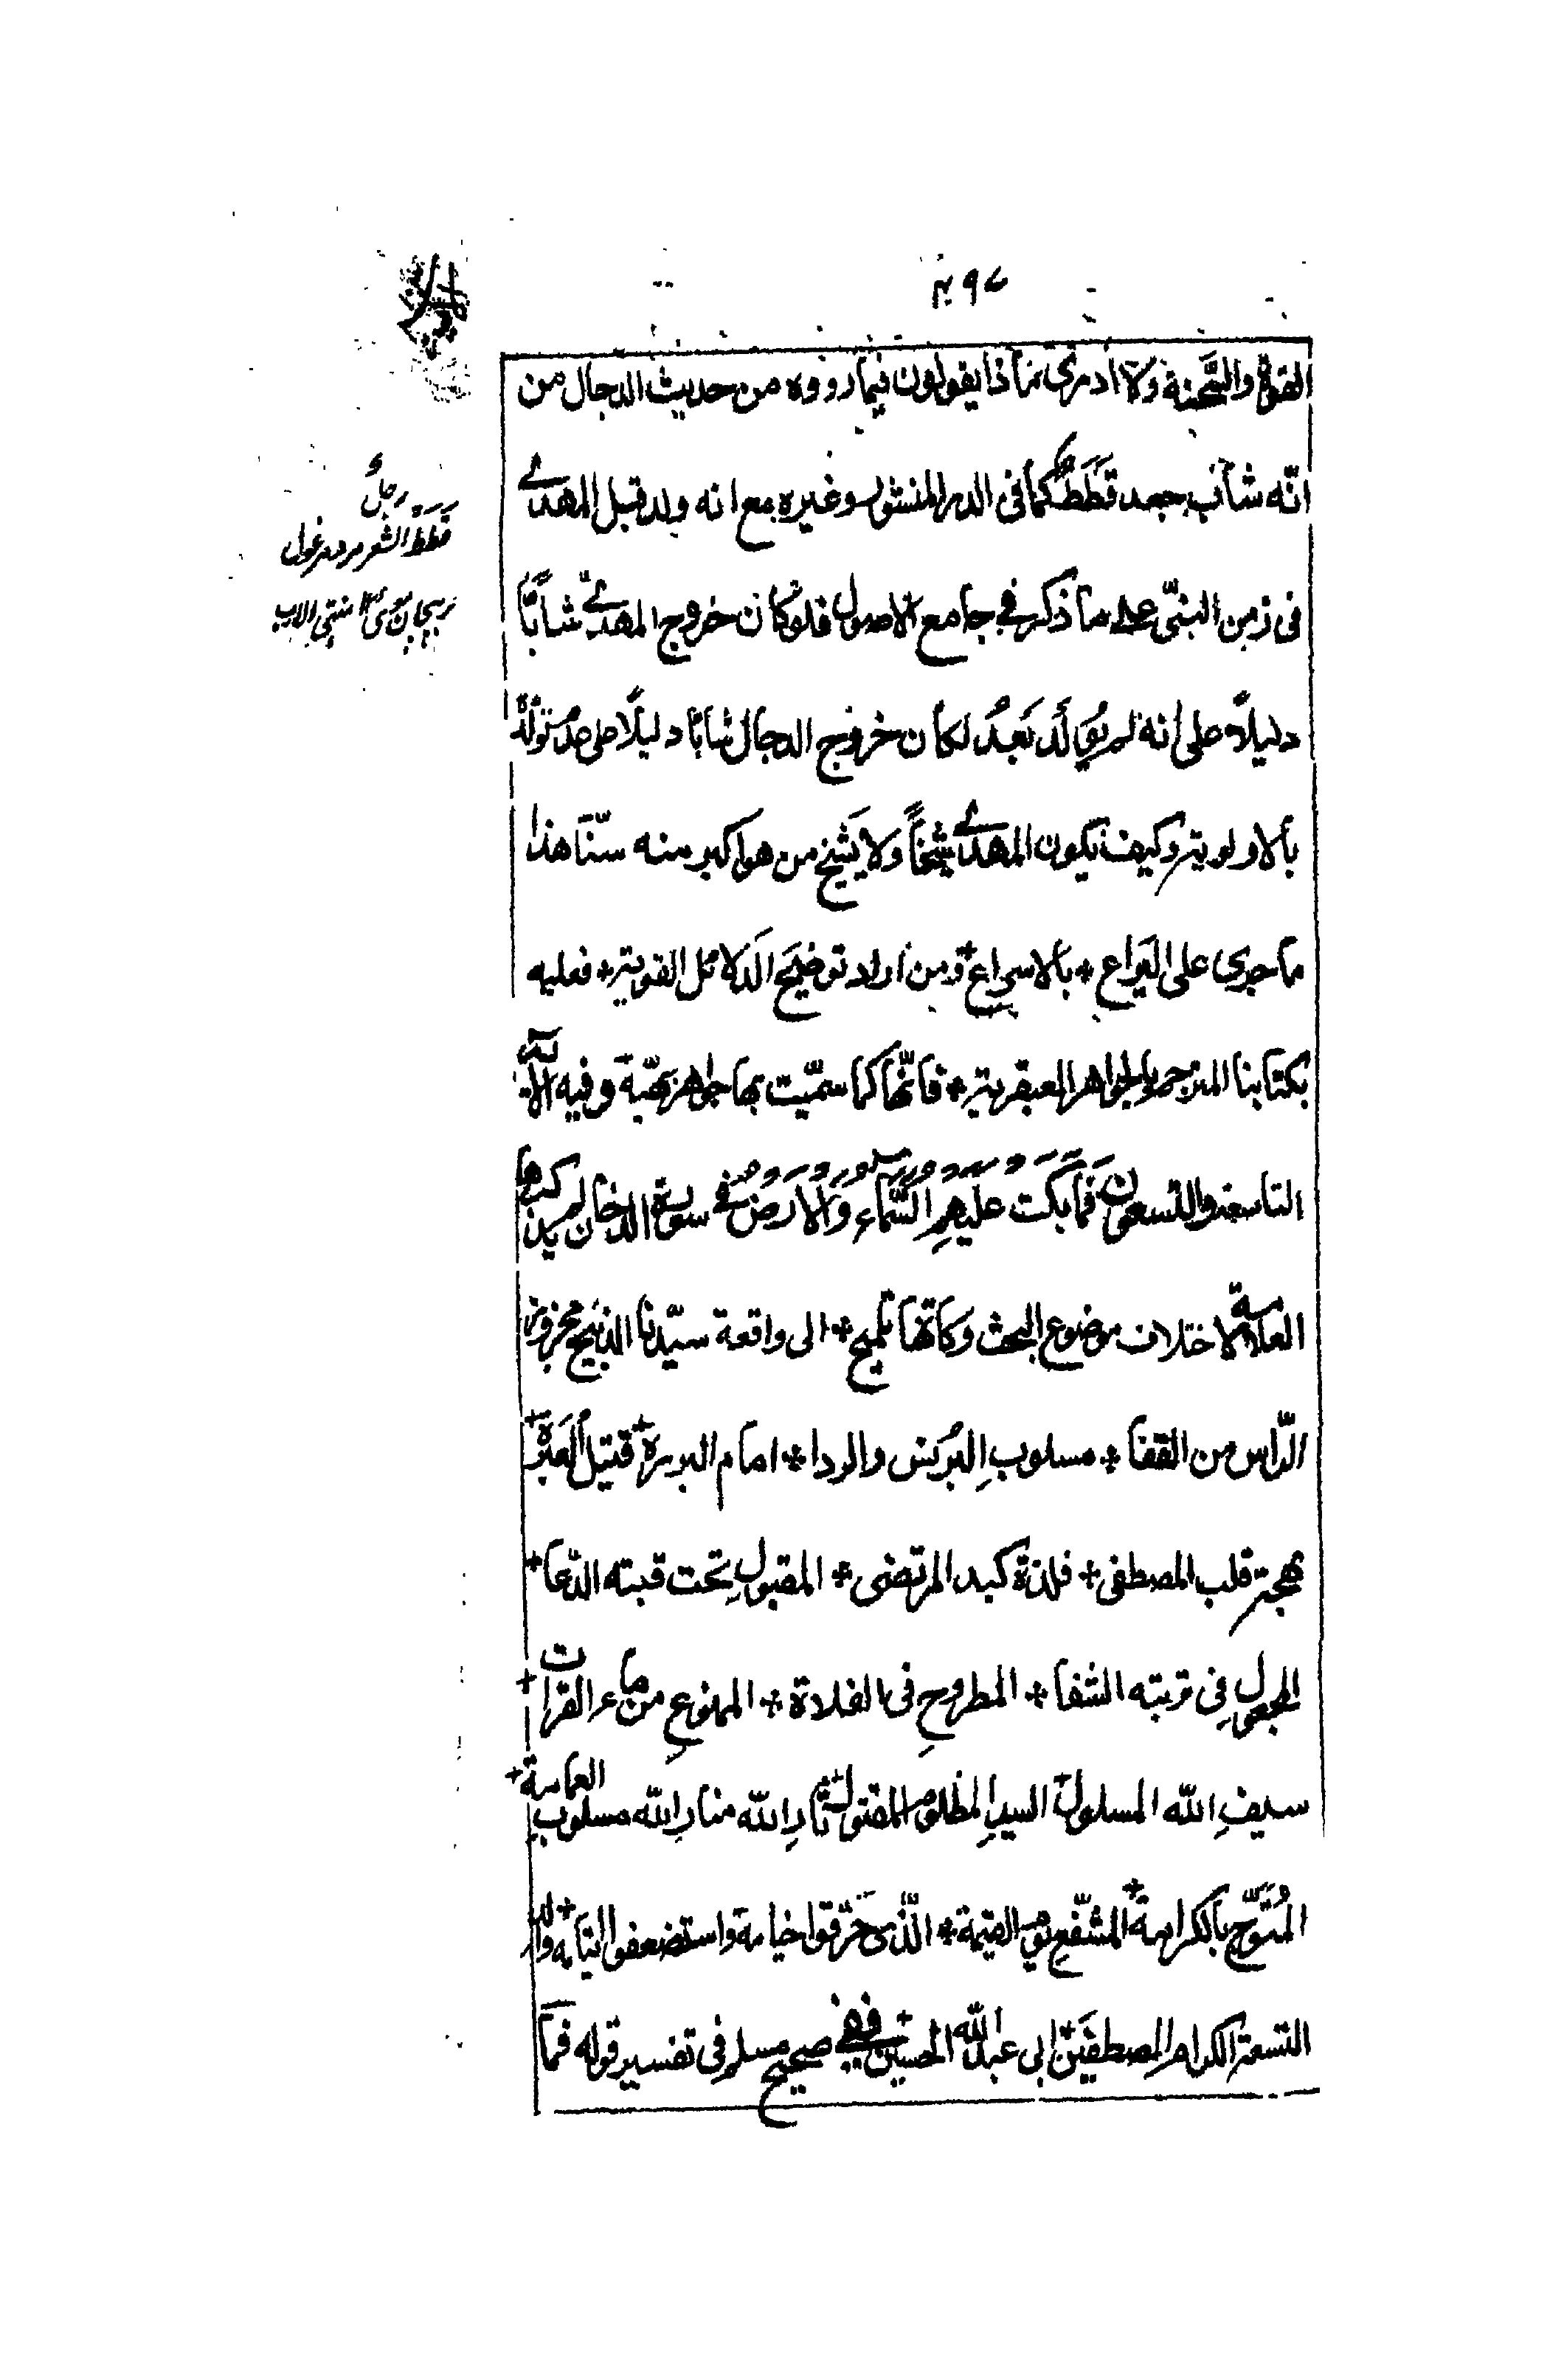 ۴۹۷
القوة والسّحنة ولا ادری ماذا يقولون فيما رووه من حديث الدجال من
انّه شابٌّ جعد قَطَطٌ كما فى الدر المنثور وغيره مع انه ولد قبل المهدى
فى زمن النبىّ على ما ذكر فى جامع الاصول فلو كان خروج المهدى شابًّا
دليلاً على انه لم يُولَد بَعدُ لكان خروج الدجال شابا دليلاً على عدم تولّده
بالاولوية وكيف يكون المهدى شيخاً ولا يَشيخ من هو اكبر منه سنّا هذا
ما جرى على اليراع * بالاسراع + ومن اراد توضيح الدلائل القوية * فعليه
بكتابنا المترجم بالجواهر العبقرية * فانّها كما سمّيت بها جواهر بهيّة وفيه الآية
التاسعة والتسعون فَمَا بَكَتْ عَلَيْهِمُ السَّمَاءُ وَالْاَرْضُ فى سورة الدخان لم يذكرها
العلامة لاختلاف موضوع البحث وكانّها تلميح * الى واقعة سيّدنا الذبيح محزوز
الرّاس من القفا * مسلوبِ البُرنس والردا * امام البررة + قتيل العَبَرَة +
بهجة قلب المصطفى + فلذة كبد المرتضى * المقبولِ تحت قبته الدّعا +
المجعولِ فى تربته الشفا * المطروحِ فى الفلاة * الممنوعِ من ماء الفرات +
سيفِ الله المسلول + السيدِ المظلوم المقتول + ثارِ الله منارِ الله مسلوبِ العمامة +
المُتَوَّجِ بالكرامة + المشفّعِ يوم القيٰمة * الّذى حَرّقوا خيامه واستضعفوا ايتامه +
التسعة الكرام المصطفَين ابى عبد الله الحسين + ففى صحيح مسلم فى تفسير قوله فما
رجلٌ
قَطَطُ الشعر مرد مرغول
منتهى الارب